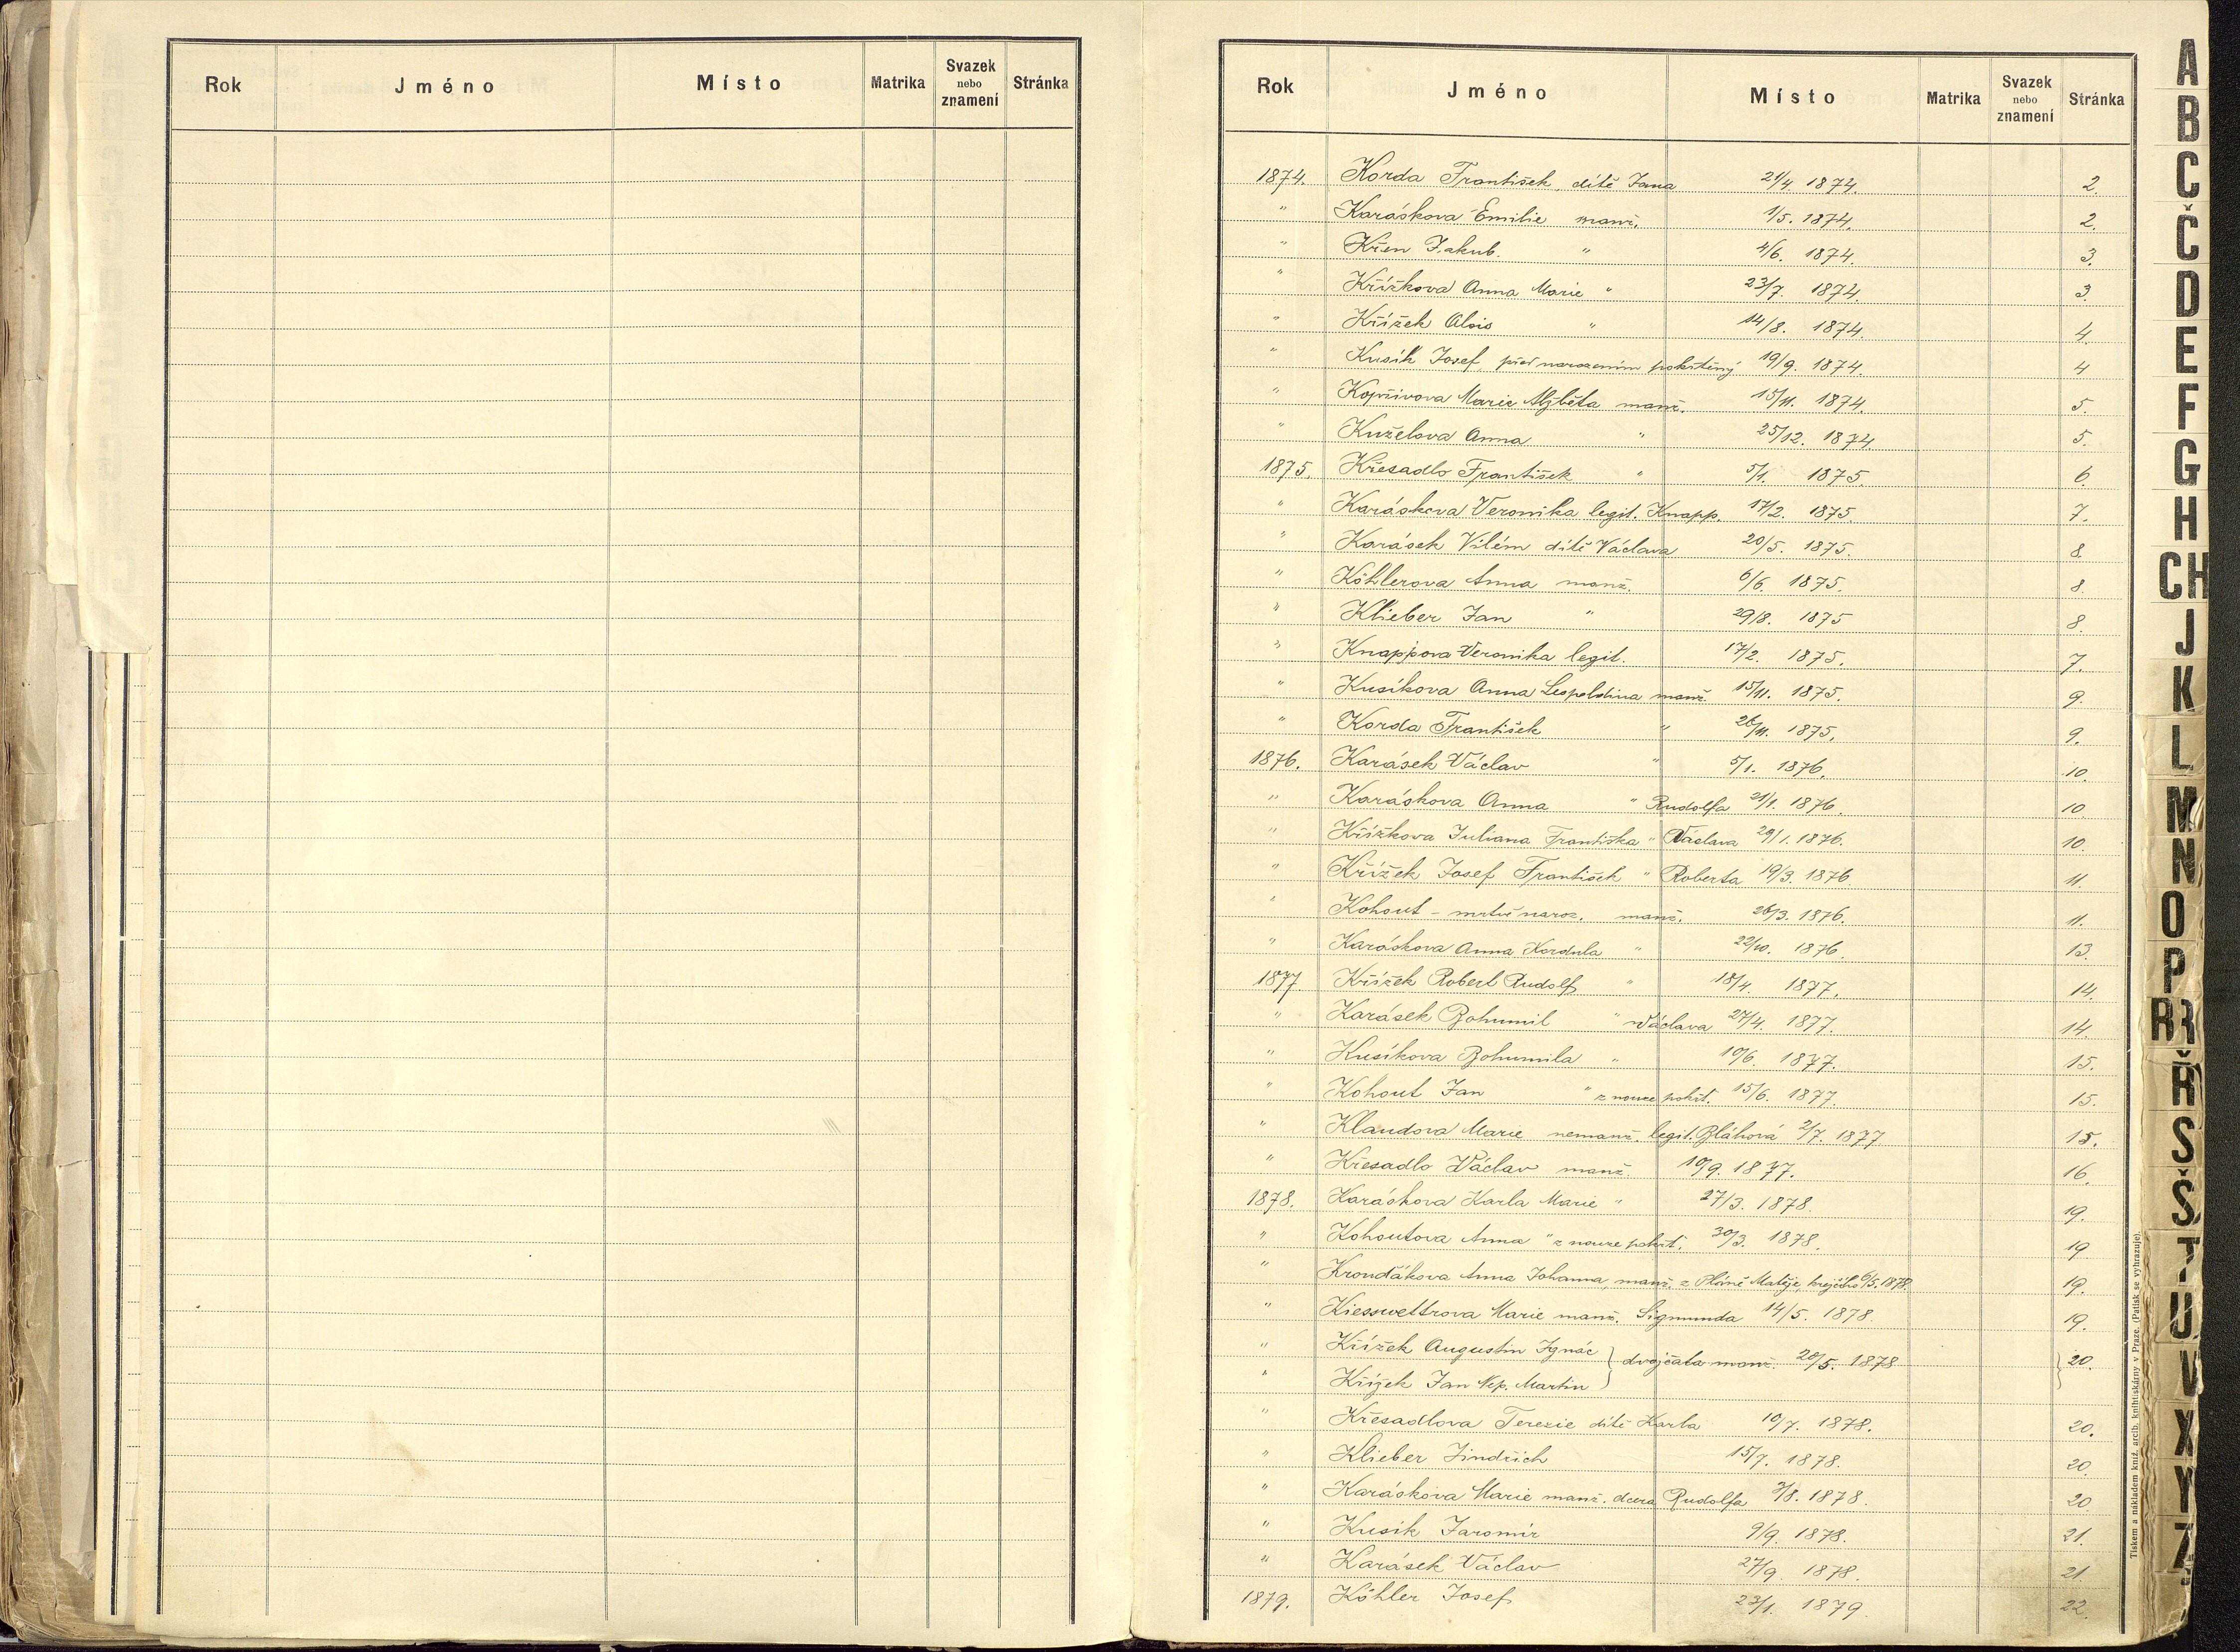 Rok Jméno Místo Matrika Svazek nebo znamení Stránka
Rok Jméno Místo Matrika Svazek nebo znamení Stránka
1874. Korda František, dítě Jana 21/4 1874. 2.
" Karáskova Emilie manž. 1/5. 1874. 2.
" Křen Jakub. " 4/6. 1874. 3.
" Křížkova Anna Marie " 23/7. 1874. 3.
" Křížek Alois " 14/8. 1874. 4.
" Kusík Josef, před narozením pokřtěný 19/9. 1874. 4
" Kopřivova Marie Alžběta manž. 15/11. 1874. 5.
" Kuželova Anna " 25/12. 1874. 5.
1875. Křesadlo František " 5/1. 1875. 6.
" Karáskova Veronika legit. Knapp. 17/2. 1875. 7.
" Karásek Vilém dítě Václava 20/5. 1875. 8.
" Köhlerova Anna manž. 6/6. 1875. 8.
" Klieber Jan " 29/8. 1875 8.
" Knappova Veronika legit. 17/2. 1875. 7.
" Kusíkova Anna Leopoldina manž. 15/11. 1875. 9.
" Korda František " 26/11. 1875. 9.
1876. Karásek Václav " 5/1. 1876. 10.
" Karáskova Anna " Rudolfa 21/1. 1876. 10
" Křížkova Juliana Františka " Václava 29/1. 1876. 10.
" Křížek Josef František " Roberta 19/3. 1876. 11.
" Kohout - mrtvě naroz. manž. 26/3. 1876. 11.
" Karáskova Anna Kordula " 22/10. 1876. 13.
1877 Křížek Robert Rudolf " 18/4. 1877. 14.
" Karásek Bohumil " Václava 27/4. 1877. 14.
" Kusíkova Bohumila " 10/6. 1877. 15.
" Kohout Jan " z nouze pokřt. 15/6. 1877. 15.
" Klaudova Marie nemanž. legit. Bláhová 2/7. 1877 15.
" Křesadlo Václav manž. 10/9. 1877. 16.
1878. Karáskova Karla Marie " 27/3. 1878. 19.
" Kohoutova Anna " z nouze pokřt. 30/3. 1878. 19
" Krouďákova Anna Johanna, manž. z Plóně Matěje, krejčího 6/5. 1878. 19.
" Kiesswettrova Marie manž. Sigmunda 14/5. 1878. 19.
" Křížek Augustin Ignác } dvojčata manž. 20/5. 1878 } 20.
" Křížek Jan Nep. Martin
" Křesadlova Terezie dítě Karla 10/7. 1878. 20.
" Klieber Jindřich 15/7. 1878. 20.
" Karáskova Marie manž. dcera Rudolfa /8. 1878. 20
" Kusík Jaromír 9/9. 1878. 21.
" Karásek Václav 27/9. 1878. 21.
1879. Köhler Josef 23/1. 1879. 22.
Tiskem a nákladem kníž. arcib. knihtiskárny v Praze. (Patisk se vyhrazuje).
A
B
C
Č
D
E
F
G
H
CH
J
K
L
M
N
O
P
R
Ř
S
Š
T
U
V
X
Y
Z